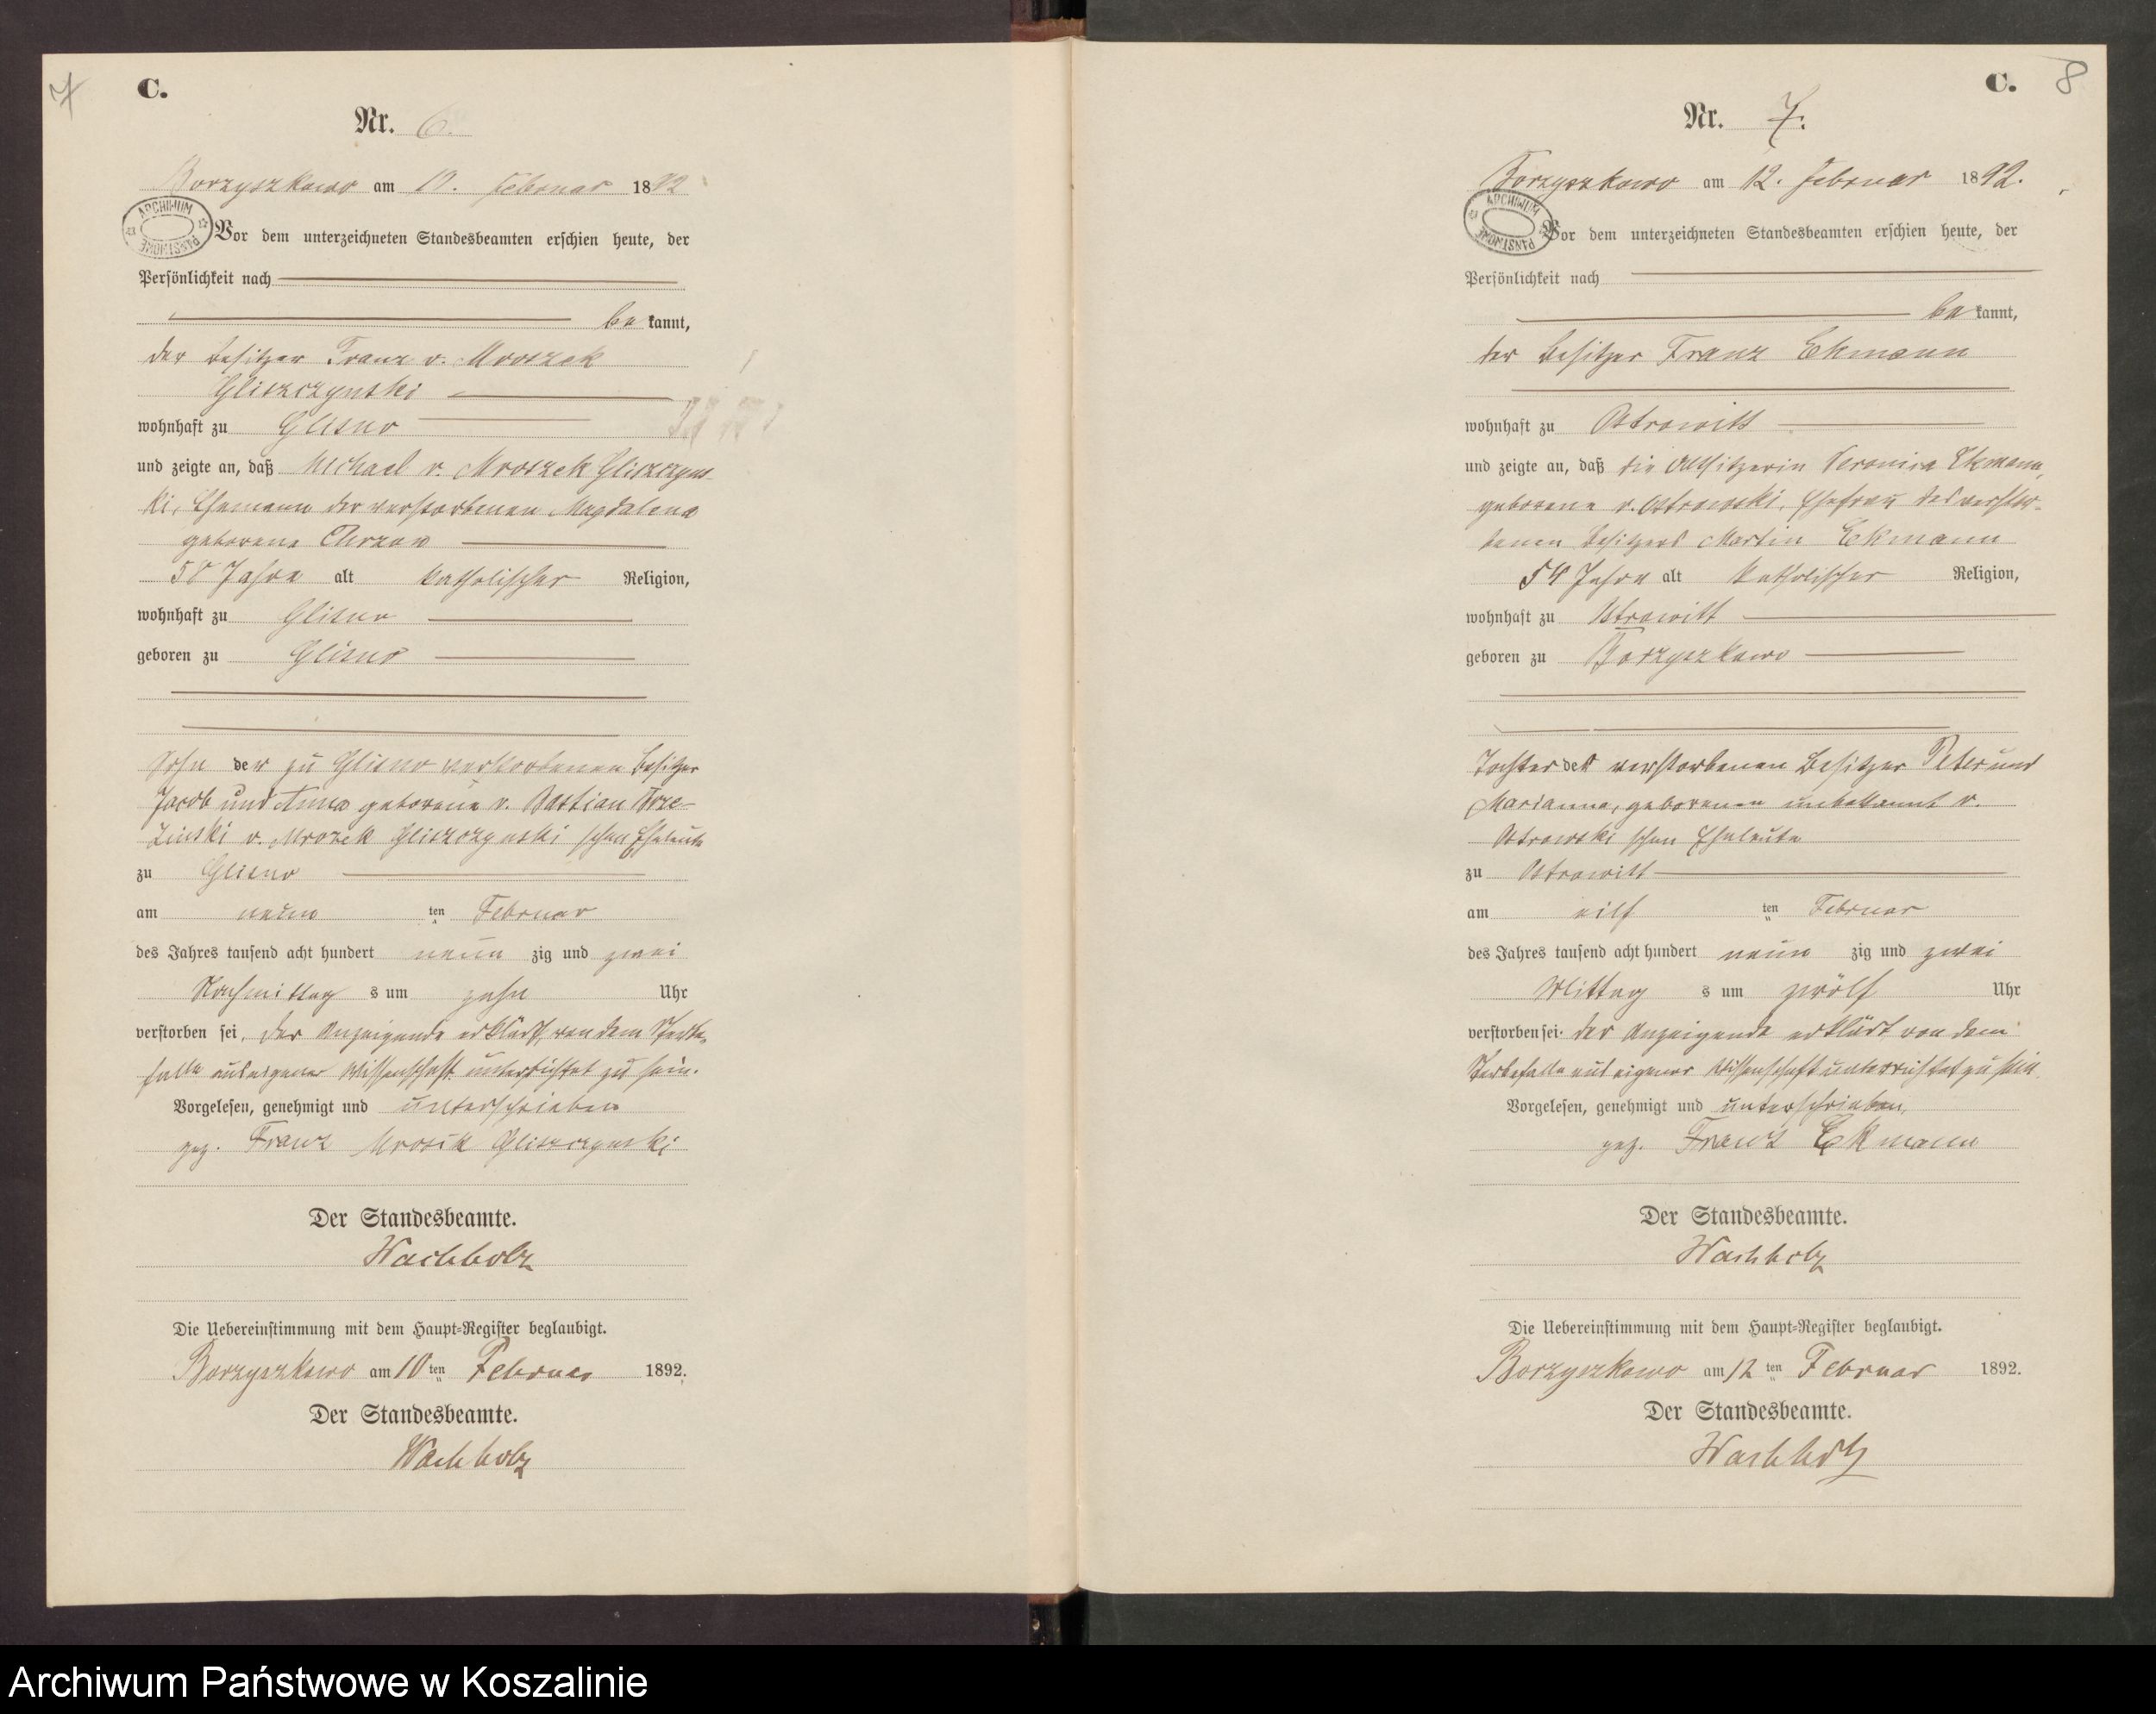 7
C.
Nr. 6.
Borzyszkowo am 10. Februar 1892
ARCHIWUM PAŃSTWOWE
Vor dem unterzeichneten Standesbeamten erschien heute, der
Persönlichkeit nach
be kannt,
der Besitzer Franz v. Mroszek
Gliszczynski
wohnhaft zu Glisno
und zeigte an, daß Michael v. Mroszek Gliszczyns-
ki, Ehemann der verstorbenen Magdalena
geborene
Jahre alt katholischer Religion,
wohnhaft zu Glisno
geboren zu Glisno
Sohn der zu Glisno verstorbenen Besitzer
Jacob und Anna geborene v.
v. Mrozek Gliszczynski schen Eheleute
zu Glisno
am neun ten Februar
des Jahres tausend acht hundert neun zig und zwei
Nachmittag s um zehn Uhr
verstorben sei. Der Anzeigende erklärt, von dem Sterbe-
falle aus eigener Wissenschaft unterrichtet zu sein.
Vorgelesen, genehmigt und unterschrieben
gez. Franz Mrosik Gliszczynski
Der Standesbeamte.
Wachholz
Die Uebereinstimmung mit dem Haupt-Register beglaubigt.
Borzyszkowo am 10 ten Februar 1892.
Der Standesbeamte.
Wachholz
C. 8
Nr. 7.
Borzyszkowo am 12. Februar 1892.
ARCHIWUM PAŃSTWOWE
Vor dem unterzeichneten Standesbeamten erschien heute, der
Persönlichkeit nach
be kannt,
der Besitzer Franz Ekmann
wohnhaft zu Ostrowitt
und zeigte an, daß die Altsitzerin Veronica Ekmann,
geborene v. Ostrowski, Ehefrau des verstor-
benen Besitzers Martin Ekmann
54 Jahre alt katholischer Religion,
wohnhaft zu Ostrowitt
geboren zu Borzyszkowo
Tochter der verstorbenen Besitzer Peter und
Marianna, geborenen unbekannt v.
Ostrowski schen Eheleute
zu Ostrowitt
am eilf ten Februar
des Jahres tausend acht hundert neun zig und zwei
Mittag s um zwölf Uhr
verstorben sei. Der Anzeigende erklärt, von dem
Sterbefalle aus eigener Wissenschaft unterrichtet zu sein.
Vorgelesen, genehmigt und unterschrieben,
gez. Franz Ekmann
Der Standesbeamte.
Wachholz
Die Uebereinstimmung mit dem Haupt-Register beglaubigt.
Borzyszkowo am 12 ten Februar 1892.
Der Standesbeamte.
Wachholz
Archiwum Państwowe w Koszalinie